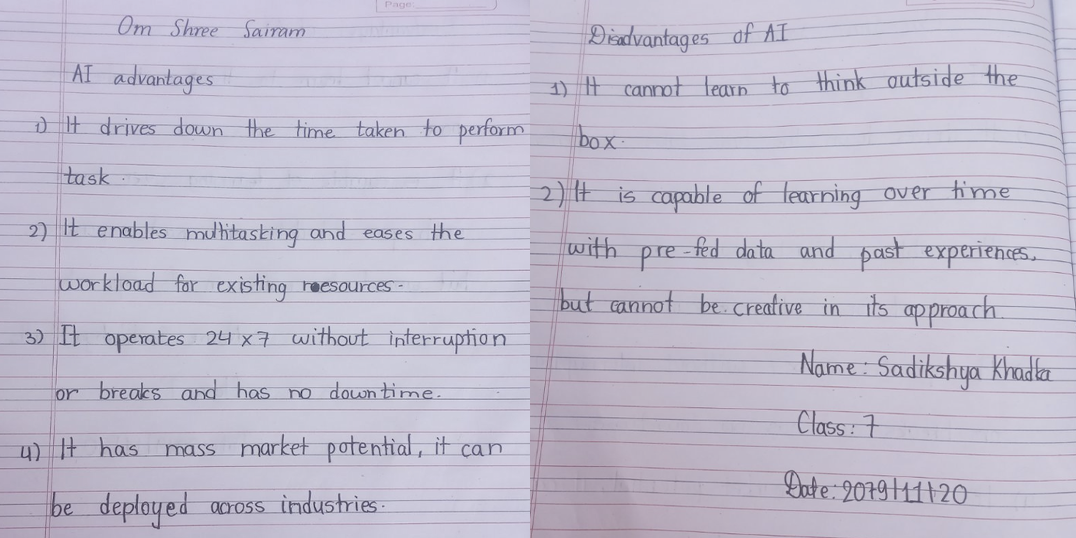 Page
Om Shree Sairam
AI advantages
1) It drives down the time taken to perform
task.
2) It enables multitasking and eases the
workload for existing resources.
3) It operates 24 x 7 without interruption
or breaks and has no downtime.
4) It has mass market potential, it can
be deployed across industries.
Disadvantages of AI
1) It cannot learn to think outside the
box.
2) It is capable of learning over time
with pre-fed data and past experiences,
but cannot be creative in its approach.
Name: Sadikshya Khadka
Class: 7
Date: 2079/11/20